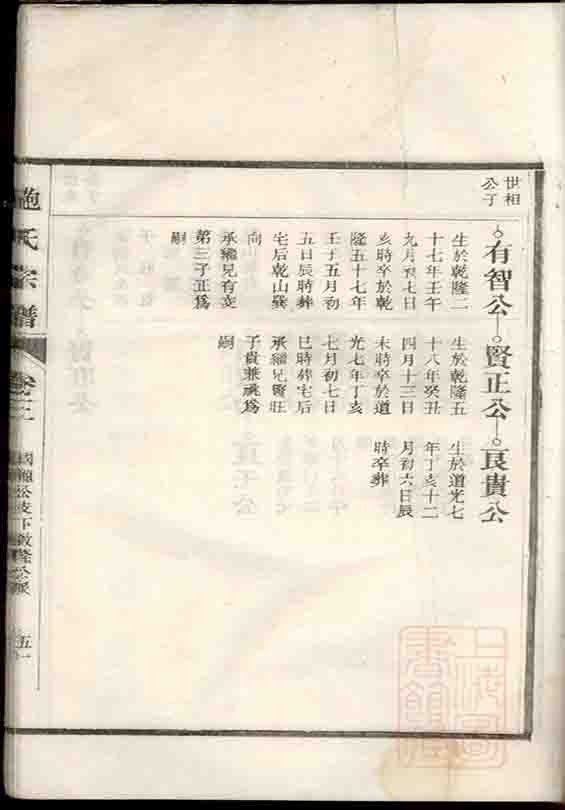 世相
公子
有智公
生於乾隆二
十七年壬午
九月初七日
亥時卒於乾
隆五十七年
壬子五月初
五日辰時葬
宅后乾山巽
向
承繼兄有
第三子正爲
嗣
賢正公
生於乾隆五
十八年癸丑
四月十三日
未時卒於道
光七年丁亥
七月初七日
巳時葬宅后
承繼兄賢旺
子貴兼祧爲
嗣
艮貴公
生於道光七
年丁亥十二
月初六日辰
時卒葬
氏宗譜
卷三
支下啟隆公派
五一
上海圖
書館藏